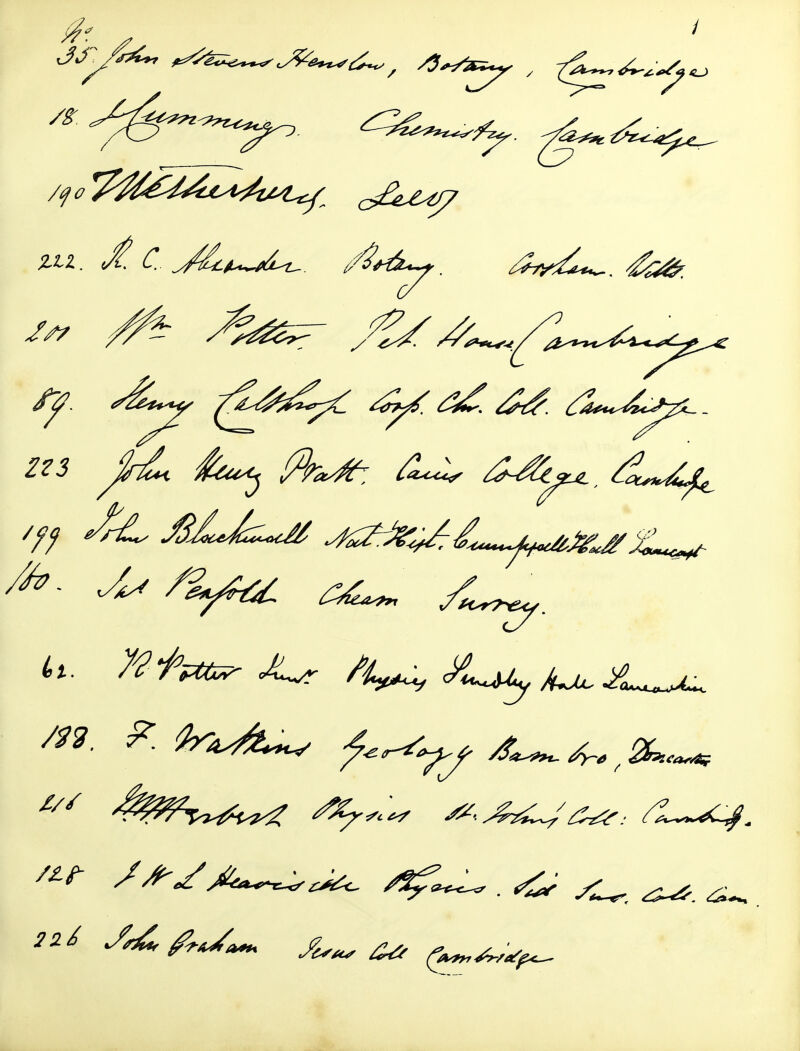 1
No.
35 John Stevens Henslow, Botany, Cambridge
18. J Cumming. Chemistry. Cambridge
190 Leeds
222. R. C. Alexander. Botany. Corsham. Wilts.
200 Wm Potter. Pet. House Cambridge
89. Henry Calthrop Corp. Chr. Coll. Cambridge.
223 John Henry Pratt. Caius College. Cambridge
199 John Blackwall Nat. Hist. Crumpsall Hall Lancast
160. Jas Penfold Cheam Surrey.
62. R Potter Junr. Physics Smedley Hall Lancashire
188. F. Watkins Geology Bambro, Doncaster
216 Herbert Physics St. John's Coll: Cambridg.
128 J W L Heaviside Physics. Sid Sus. Coll. Cam.
226 John Graham Jesus Coll Cambridge